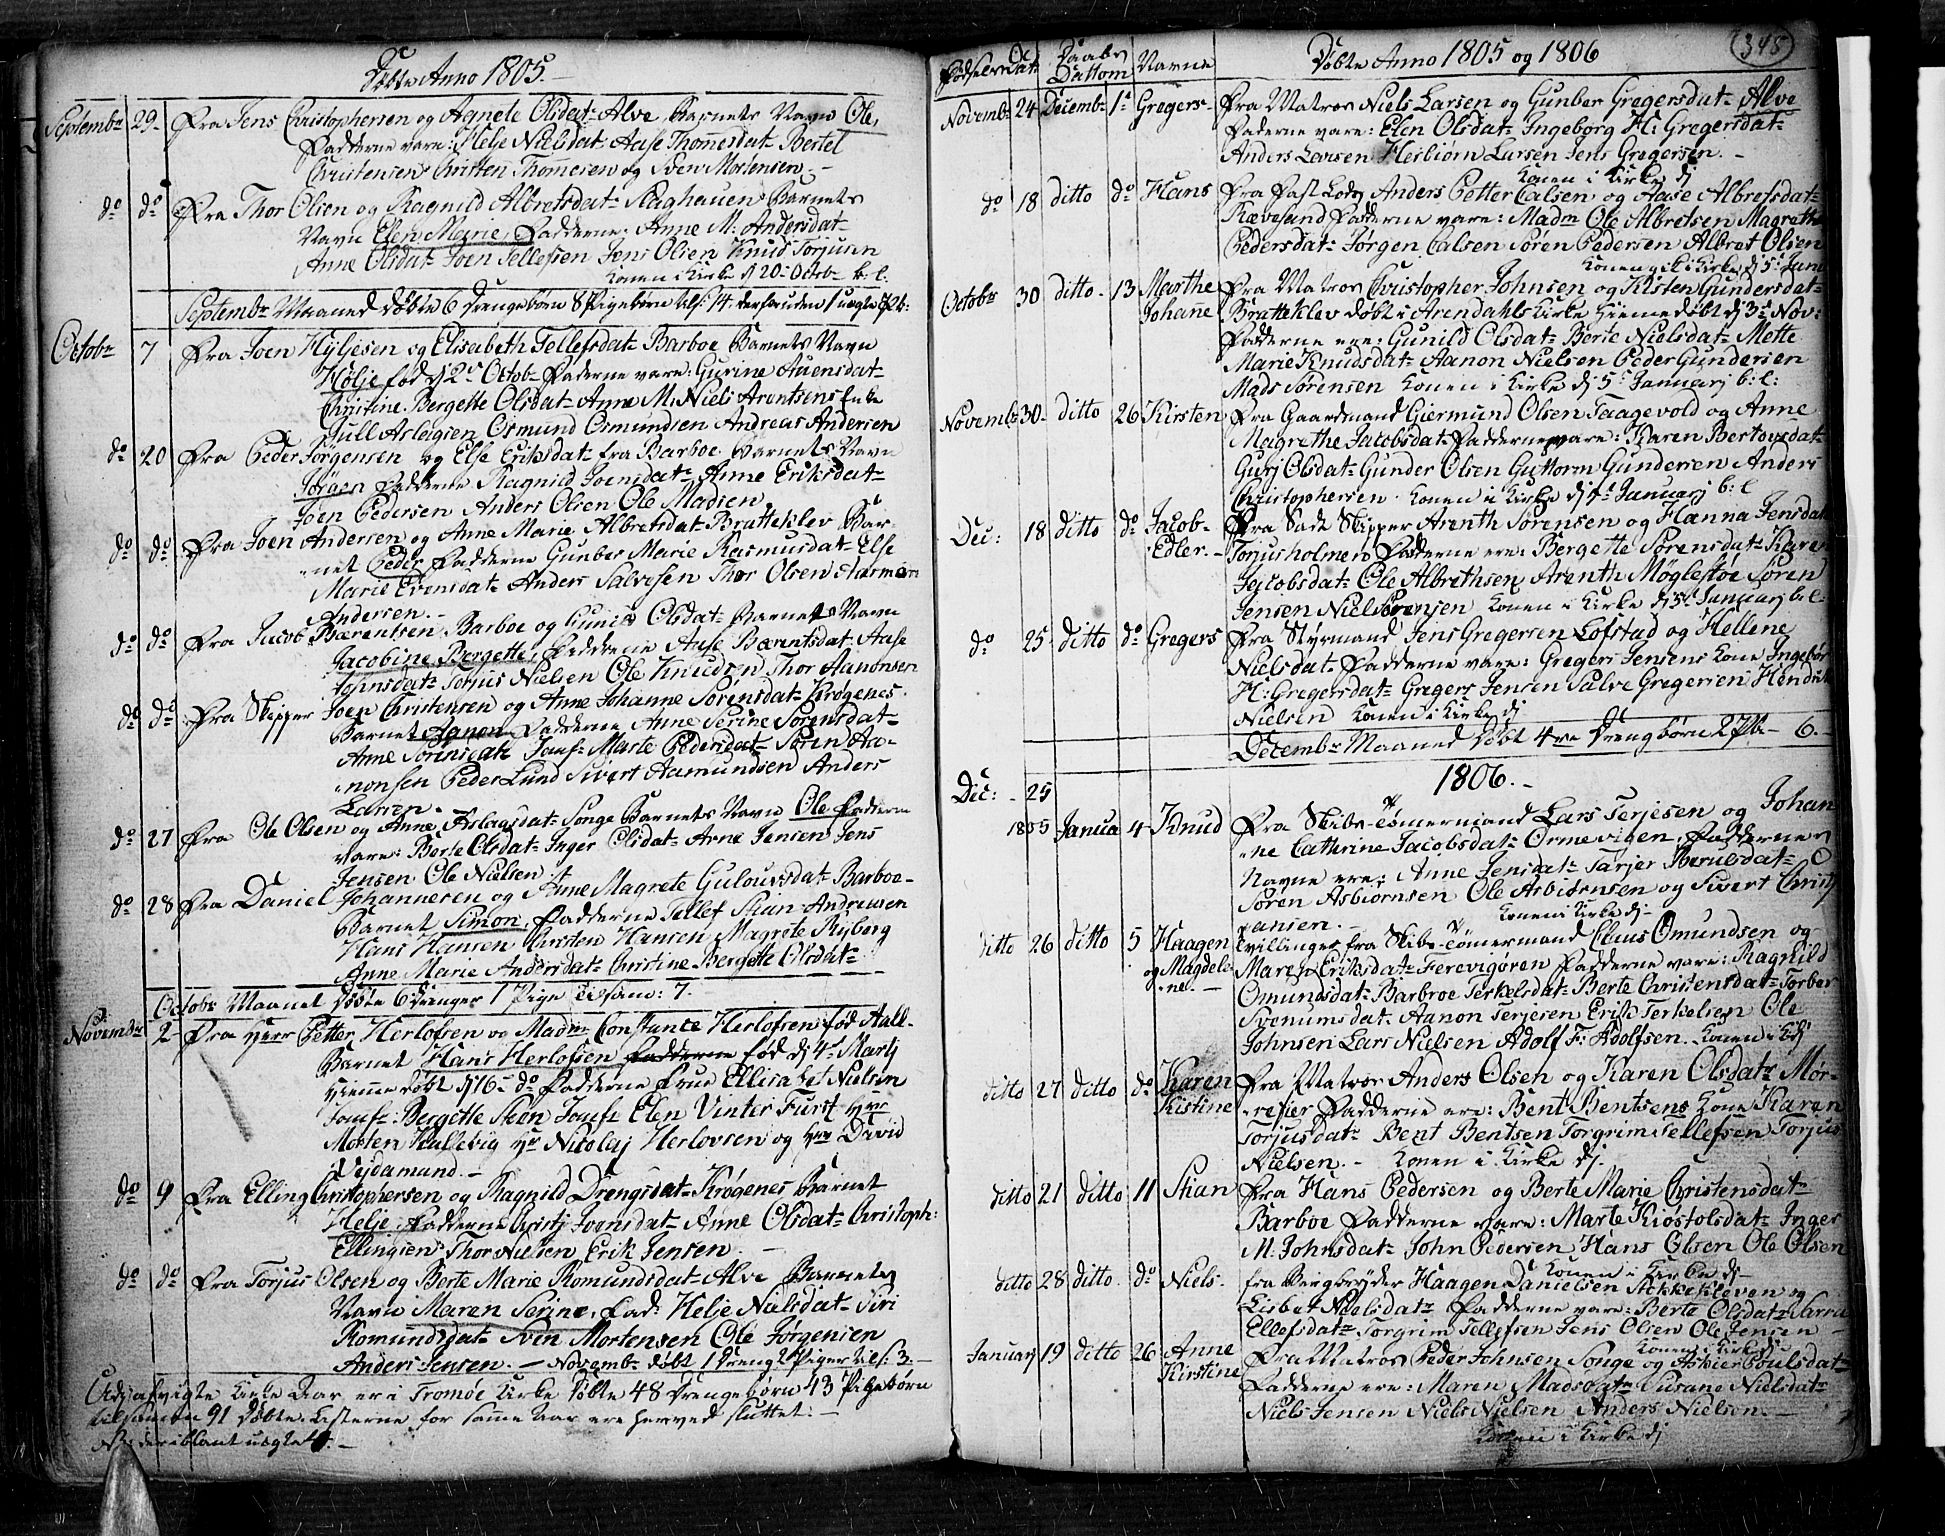 Døbte Anno 1805.
Septembr 29. Fra Jens Christophersen og Agnete Olsdatr Alve, Barnets Navn Ole,
Fadderne vare: Helje Nielsdat Aase Thommesdat Bertel
Christensen Christen Thommesen og Sven Mortensen.
do do Fra Thor Olsen og Ragnild Albretsdatr Raghauen Barnets
Navn Elen Marie, Fadderne: Anne M. Andersdatr
Anne Olsdat Joen Tellefsen Jens Olsen Knud Torjusen
Konen i Kirke d 20 Octobr b:l.
Septembr Maaned døbte 6 Drengebørn 8 Pigebørn tils: 14. derforuden 1 uægte
Octobr 7 Fra Joen Hyljesen og Elisabeth Tellefsdatr Barboe Barnets Navn
Hølje fød d 2 Octobr Fadderne vare: Gurine Auensdatr
Christine Bergette Olsdatr Anne M. Niels Arentsens Enke
Jull Aslagsen Osmund Osmundsen Andreas Andersen
do 20 Fra Peder Jørgensen og Else Eriksdatr fra Barboe Barnets Navn
Jørgen Fadderne Ragnild Joensdatr Anne Eriksdatr
Joen Pedersen Anders Olsen Ole Madsen
do do Fra Joen Andersen og Anne Marie Albretsdat Bratteklev Bar-
net Peder Fadderne Gunber Marie Rasmusdat Else
Marie Evensdatr Anders Salvesen Thor Olsen Aarmon
Andersen.
do do Fra Jacob Bærentsen Barboe og Gunild Olsdatr Barnets Navn
Jacobine Bergette, Fadderne Aase Bærentsdat Aase
Johnsdatr Torjus Nielsen Ole Knudsen Thor Aanonsen
do do Fra Skipper Joen Christensen og Anne Johanne Sørensdatr Krøgenes
Barnet Aanon Fadderne Anne Serine Sørensdatr
Anne Sørensdatr Jomfr Marte Pedersdatr Søren Aa-
nonsen Peder Lund Sivert Aamundsen Anders
Larsen.
do 27 Fra Ole Olsen og Anne Aslagsdatr Songe Barnets Navn Ole Fadderne
vare: Berte Olsdatr Inger Olsdat Arne Jensen Jens
Jensen Ole Nielsen
do 28 Fra Daniel Johannesen og Anne Magrete Guloursdat Barboe
Barnet Simon, Fadderne Tellef Skian Andreasen
Hans Hansen Karsten Hansen Magrete Ryberg
Anne Marie Andersdatr Christine Bergette Olsdatr
Octobr Maanet døbte 6 Drenger 1 Pige tilsam: 7.
Novembr 2 Fra Herr Petter Herlofsen og Madm Constance Herlofsen fød Aall
Barnet Hans Herlofsen Fadderne fød d 4 Martj
Hiemmedøbt d 16 do Fadderne Frue Ellisabet Nielsen
Jomfr: Bergette Skøn Jomfr Elen Vinter Furst Hr
Morten Kallevig Hr Nicolaj Herlovsen og Hr David
Vejdamand.
do 9 Fra Elling Christophersen og Ragnild Drengsdatr Krøgenes Barnet
Helje Fadderne Christj Joensdatr Anne Olsdatr Christoph:
Ellingsen Thor Nielsen Erik Jensen
do do Fra Torjus Olsen og Berte Marie Romundsdatr Alve Barnets
Navn Maren Serine, Fad: Helje Nielsdatr Siri
Romundsdatr Sven Mortensen Ole Jørgensen
Anders Jensen. Novembr døbt 1 Dreng 2 Piger tils: 3.
Udj afvigte Kirke Aar er i Tromøe Kirke døbte 48 Drengebørn 43 Pigebørn
tilsamen 91 døbte. Listerne for samme Aar ere herved sluttet.
deriblant uægte
Fødsels Dat: Daabs Dattom Navne Døbte Anno 1805 og 1806 345
Novembr 24 Decembr 1 Gregers Fra Matros Niels Larsen og Gunber Gregersdatr Alve
Fadderne vare: Elen Olsdatr Ingeborg H: Gregersdatr
Anders Larsen Herbiørn Larsen Jens Gregersen.
Konen i Kirke dj
do 18 ditto do Hans Fra Anders Petter Calsen og Aase Albretsdatr
Ræveland Fadderne vare: Madm Ole Albretsen Magrethe
Pedersdatr Jørgen Calsen Søren Pedersen Albret Olsen
Konen gik i Kirke dj 5 Janu
Octobr 30 ditto 13 Marthe Johanne Fra Matros Christopher Johnsen og Kisten Gundersdatr
Bratteklev døbt i Arendahls Kirke hiemedøbt dj 3 Nov:
Fadderne ere: Gunild Olsdatr Berte Nielsdatr Mette
Marie Knudsdatr Aanon Nielsen Peder Gundersen
Mads Sørensen Konen i Kirke dj 5 Januarj b:l:
Novembr 30 ditto 26 Kirsten Fra Gaardmand Giermund Olsen Faagevold og Anne
Magrethe Jacobsdatr Fadderne vare: Karen Bertovsdatr
Gurj Olsdatr Gunder Olsen Guttorm Gundersen Anders
Christophersen. Konen i Kirke dj Januarj b:l
Dec: 18 ditto do Jacob Edler. Fra Skipper Arenth Sørensen og Hanna Jensdatr
Torjusholmen Fadderne ere: Bergette Sørensdatr Karen
Jacobsdatr Ole Albrethsen Arenth Møglestøe Søren
Jensen Niel Sørensen Konen i Kirke dj 5 Januarj b:l:
do 25 ditto do Gregers Fra Styrmand Jens Gregersen Lofstad og Hellene
Nielsdatr Fadderne vare: Gregers Jensens Kone Ingebor
H: Gregersdatr Gregers Jensen Salve Gregersen Hendrik
Nielsen Konen i Kirke dj
Decembr Maaned døbt 4re Drengbørn 2 P 6.
1806.
Dec: 25
1805 Janua 4 Knud Fra Skibs Tømermand Lars Terjesen og Johan
ne Cathrine Jacobsdatr Ormevigen, Faddernes
Navne ere: Anne Jensdatr Tarjer Bærulsdatr
Søren Asbiørnsen Ole Asbiørnsen og Sivert Christj
ansen.
Konen i Kirke dj
ditto 26 ditto 5 Haagen og Magdelene. Tvillinger fra Skibs Tømermand Claus Omundsen og
Maren Eriksdatr Ferevigøren Fadderne vare: Ragnild
Omundsdatr Barbroe Terkelsdatr Berte Christensdatr Torber
Svenumsdatr Aanon Terjesen Erik Terkelsen Ole
Johnsen Lars Nielsen Adolf F: Adolfsen. Konen i K dj
ditto 27 ditto do Karen Kistine Fra Matros Anders Olsen og Karen Olsdatr Mør-
refier Fadderne ere: Bent Bentsens Kone Karen
Torjusdatr Bent Bentsen Torgrim Tellefsen Torjus
Nielsen. Konen i Kirke dj.
ditto 21 ditto 11 Stian Fra Hans Pedersen og Berte Marie Christensdatr
Barboe Fadderne vare: Marte Kiøstolsdatr Inger
M. Johnsdatr John Pedersen Hans Olsen Ole Olsen
Konen i Kirke dj
ditto 28 ditto do Niels. fra Bergbryder Haagen Danielsen Stekkekleven og
Lisbet Nielsdatr Fadderne vare: Berte Olsdatr Sarra
Ellefsdatr Torgrim Tellefsen Jens Olsen Ole Jensen
Konen i Kirke dj
Januarj 19 ditto 26 Anne Kirstine Fra Matros Peder Johnsen Songe og Asbier Poulsdatr
Fadderne ere: Maren Madsdatr Susane Nielsdatr
Niels Jensen Niels Nielsen Anders Nielsen.
Konen i Kirke dj